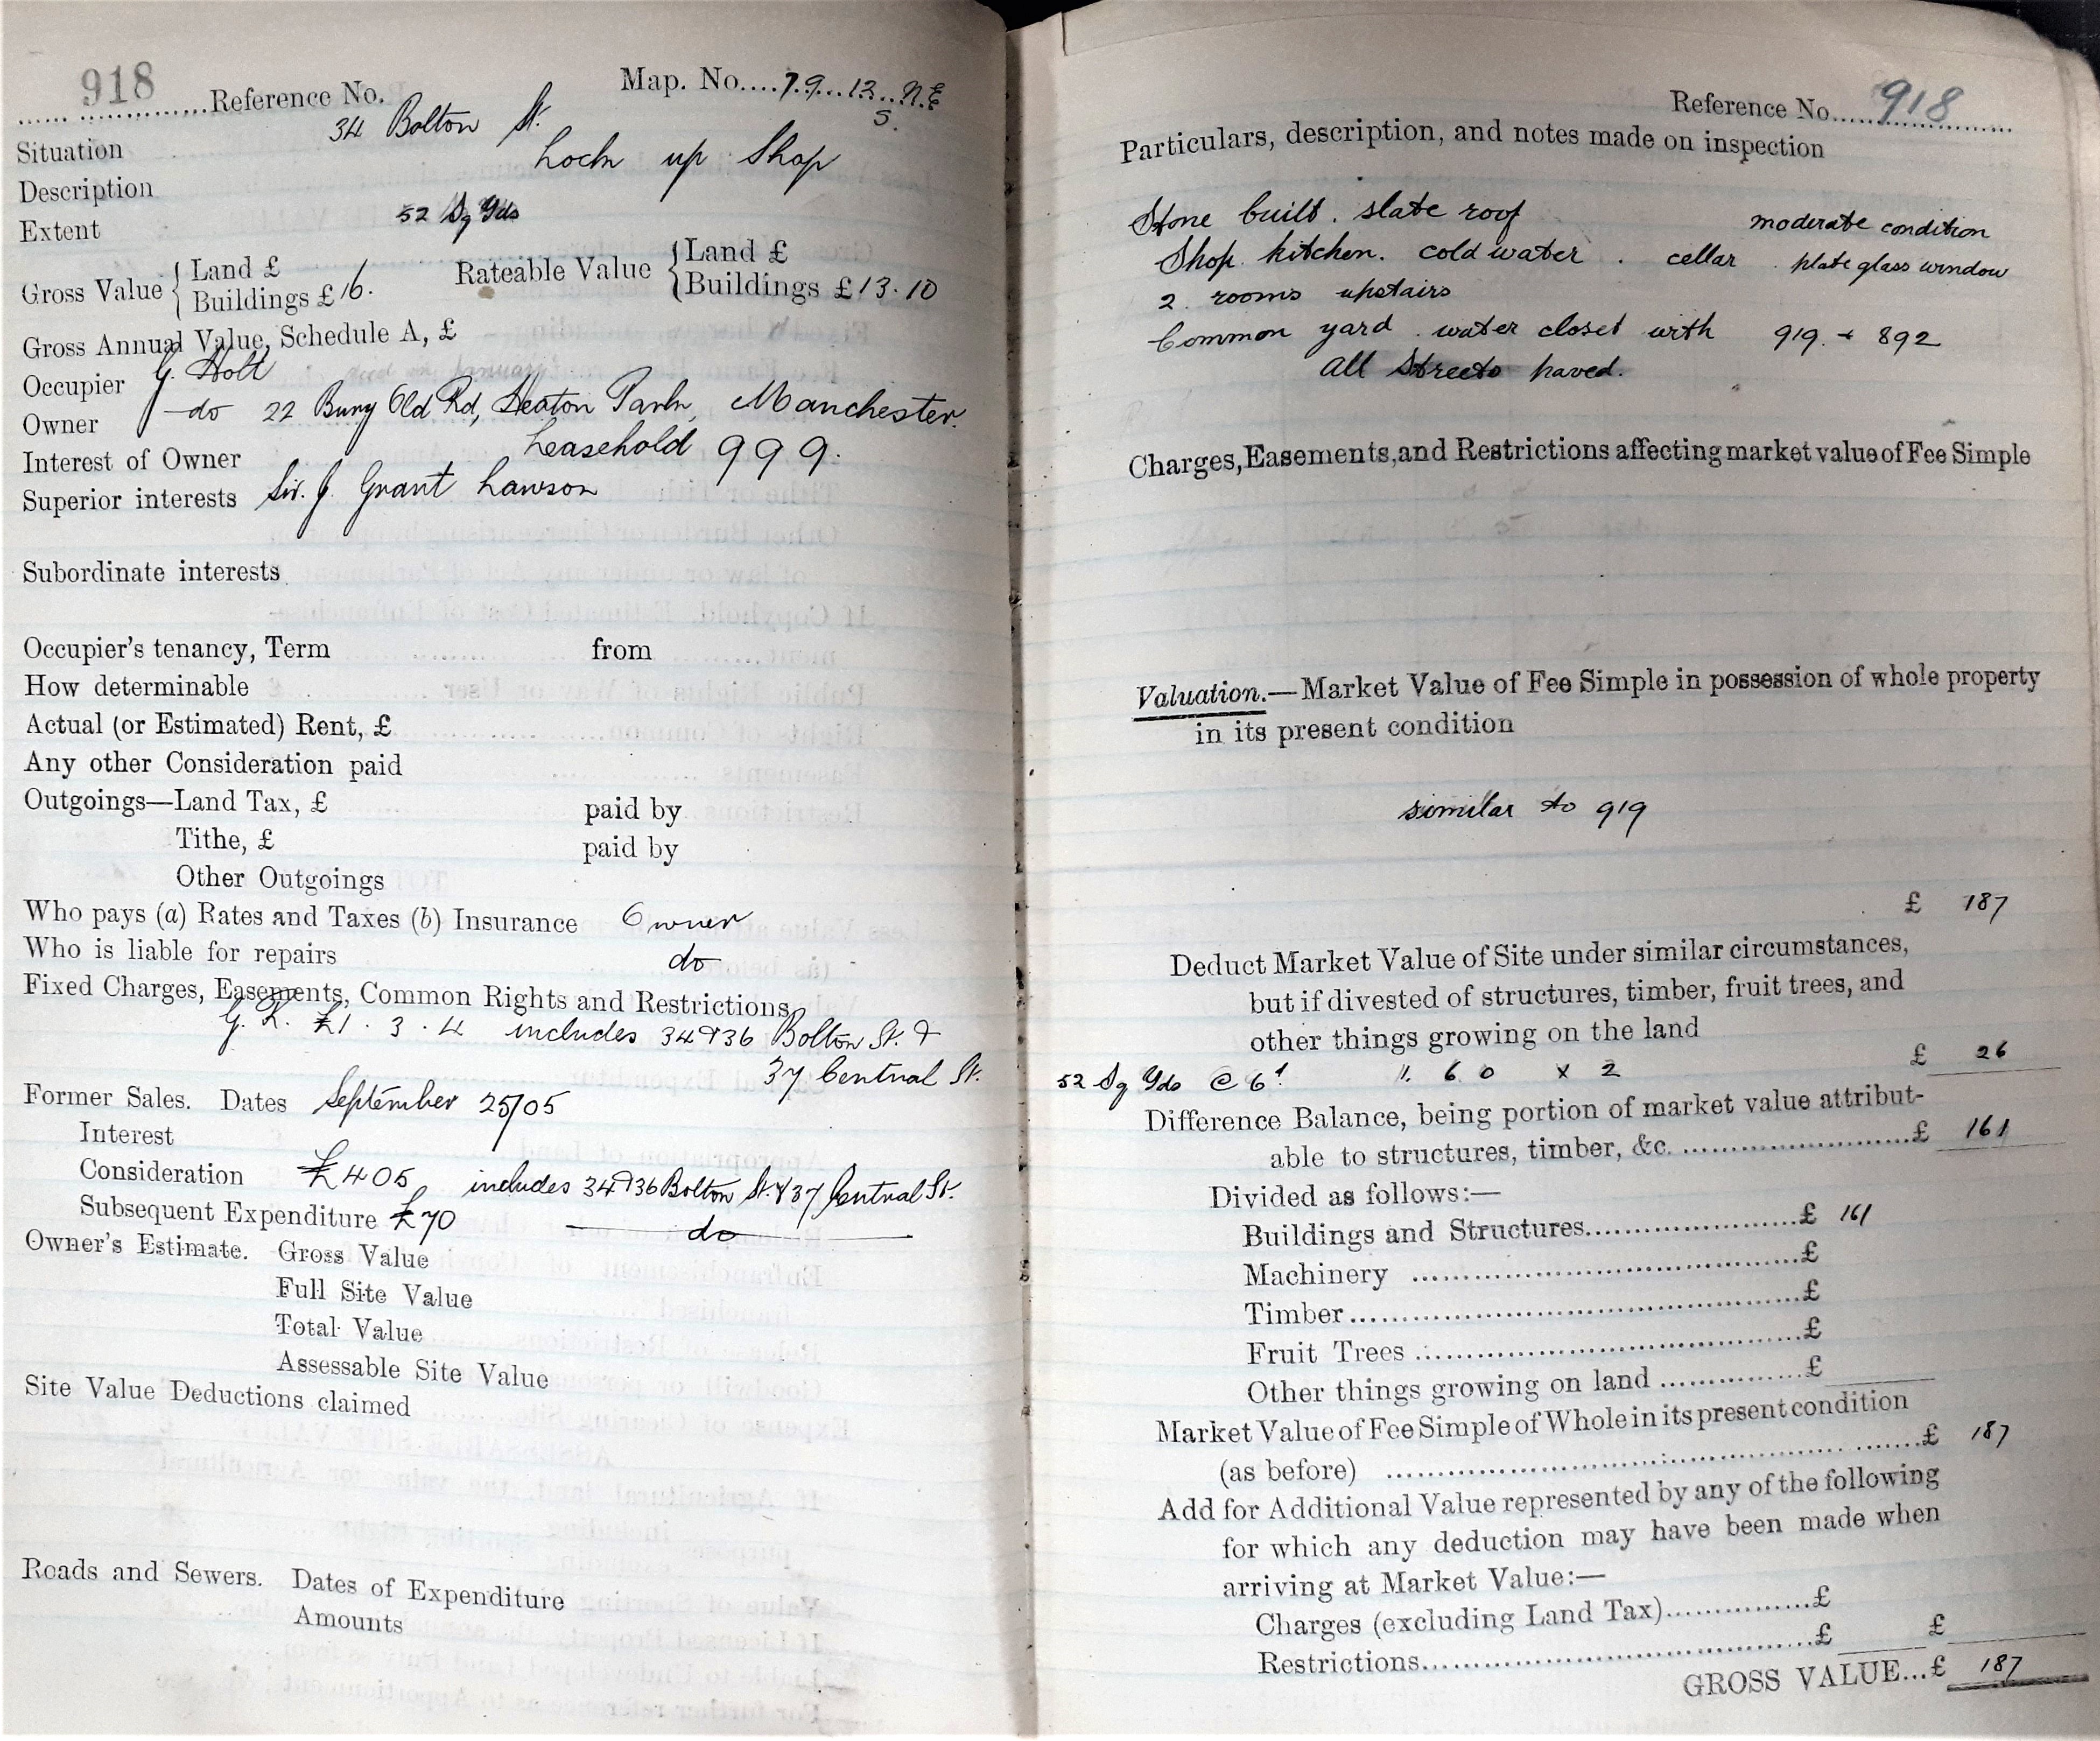 918 Reference No. Map. No. 79. 13. N.E
S.
Situation 34 Bolton St.
Description Lock up Shop
Extent 52 Sq Yds
Gross Value { Land £
Buildings £ 16.
Rateable Value { Land £
Buildings £ 13.10
Gross Annual Value, Schedule A, £
Occupier G. Holt
Owner do 22 Bury Old Rd, Heaton Park, Manchester.
Interest of Owner Leasehold 999.
Superior interests Sir. J. Grant Lawson
Subordinate interests
Occupier's tenancy, Term from
How determinable
Actual (or Estimated) Rent, £
Any other Consideration paid
Outgoings—Land Tax, £ paid by
Tithe, £ paid by
Other Outgoings
Who pays (a) Rates and Taxes (b) Insurance Owner
Who is liable for repairs do
Fixed Charges, Easements, Common Rights and Restrictions
G. R. £1. 3. 4 includes 34 & 36 Bolton St. &
37 Central St.
Former Sales. Dates September 25/05
Interest
Consideration £405 includes 34 & 36 Bolton St. & 37 Central St.
Subsequent Expenditure £70 do
Owner's Estimate. Gross Value
Full Site Value
Total Value
Assessable Site Value
Site Value Deductions claimed
Roads and Sewers. Dates of Expenditure
Amounts
Reference No. 918
Particulars, description, and notes made on inspection
Stone built. slate roof moderate condition
Shop. kitchen. cold water. cellar. plate glass window
2. rooms upstairs
Common yard. water closet with 919. + 892
All Streets paved.
Charges, Easements, and Restrictions affecting market value of Fee Simple
Valuation.—Market Value of Fee Simple in possession of whole property
in its present condition
similar to 919
£ 187
Deduct Market Value of Site under similar circumstances,
but if divested of structures, timber, fruit trees, and
other things growing on the land
52 Sq Yds @ 6d 60 x 2 £ 26
Difference Balance, being portion of market value attribut-
able to structures, timber, &c. £ 161
Divided as follows:—
Buildings and Structures £ 161
Machinery £
Timber £
Fruit Trees £
Other things growing on land £
Market Value of Fee Simple of Whole in its present condition
(as before) £ 187
Add for Additional Value represented by any of the following
for which any deduction may have been made when
arriving at Market Value:—
Charges (excluding Land Tax) £
Restrictions £ £
GROSS VALUE...£ 187